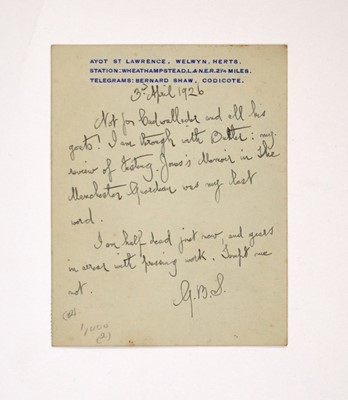 AYOT ST LAWRENCE, WELWYN, HERTS.
STATION: WHEATHAMPSTEAD, L.&N.E.R. 2¼ MILES.
TELEGRAMS: BERNARD SHAW, CODICOTE.
3rd April 1926
Not for Cadwallader and all his
goats! I am through with Butler: my
review of Festing-Jones's Memoir in The
Manchester Guardian was my last
word.
I am half dead just now, and years
in arrear with pressing work. Tempt me
not.
G.B.S.
1,000
(2)